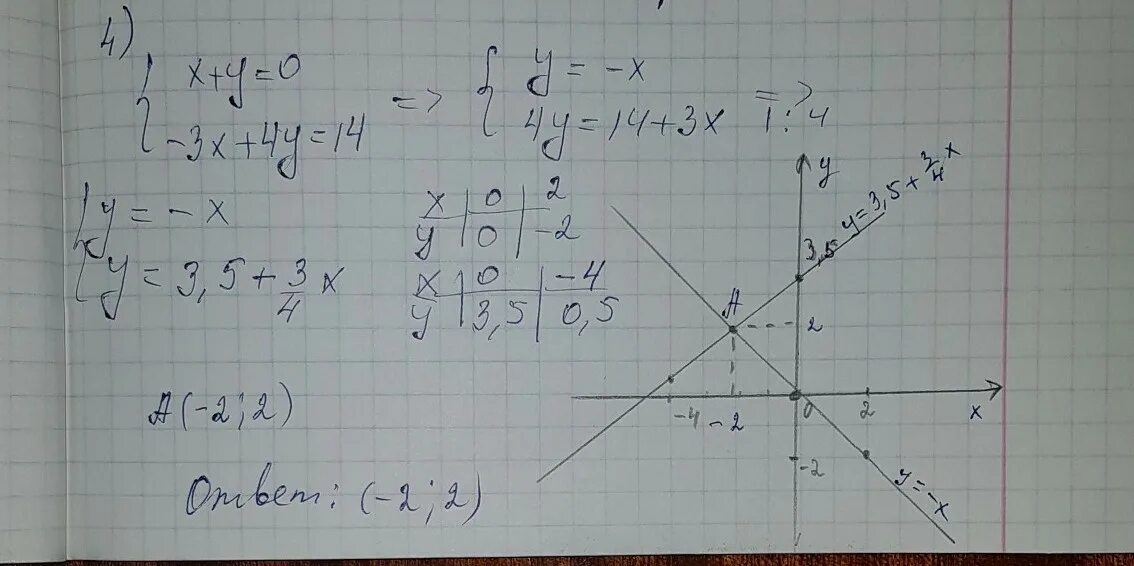 4)
{ x+y=0
-3x+4y=14
=> { y = -x
4y = 14+3x |:4 =>
{ y = -x
y = 3,5 + 3/4 x
x | 0 | 2
y | 0 | -2
x | 0 | -4
y | 3,5 | 0,5
A(-2; 2)
Ответ: (-2; 2)
y
y=3,5+3/4 x
3,5
A
2
-4
-2
0
2
x
-2
y=-x